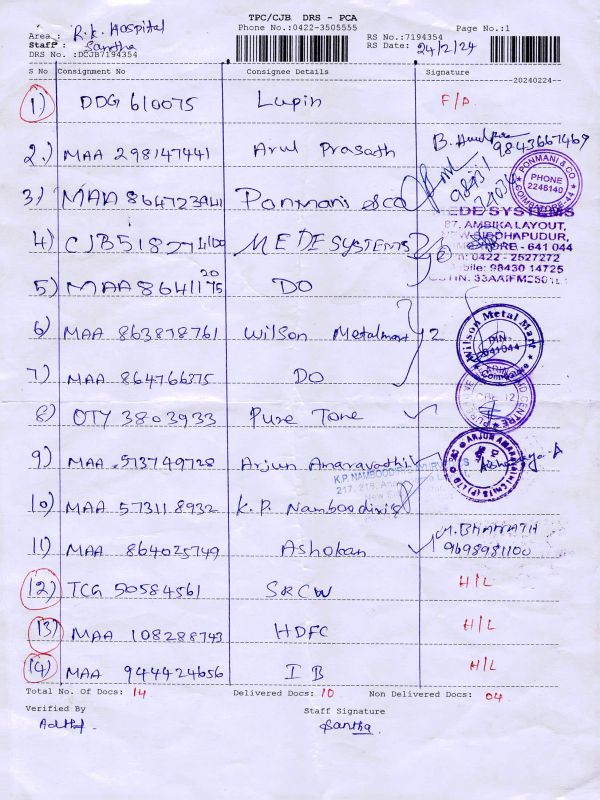 TPC/CJB DRS - PCA
Area : R.K. Hospital
Phone No.:0422-3505555
RS No.:7194354
Page No.:1
Staff : Santha
RS Date: 24/2/24
DRS No. :DCJB7194354
S No Consignment No Consignee Details Signature
20240224
1) DDG 610075 Lupin F/A
2) MAA 298147441 Arul Prasath B. 9843667469
3) MAA 864723941 Ponmani & co
PONMANI & CO PHONE 2246140 COIMBATORE-44
4) CJB518274100 MEDE SYSTEMS
MEDE SYSTEMS
87, AMBIKA LAYOUT,
COIMBATORE - 641 044
0422 - 2527272
Mobile: 98430 14725
5) MAA 864117520 DO
6) MAA 863878761 Wilson Metalmart 2
Wilson Metal Mart PIN 641044 Coimbatore
7) MAA 864766375 DO
8) OTY 3803933 Pure Tone
9) MAA 573749728 Arjun Amaravathi
10) MAA 573118932 K.P. Namboodiris
K.P. NAMBOODIRI'S
11) MAA 864025749 Ashokan M. BHARATH
9698981100
12) TCG 50584561 SRCW H/L
13) MAA 108288743 HDFC H/L
14) MAA 944424656 IB H/L
Total No. Of Docs: 14 Delivered Docs: 10 Non Delivered Docs: 04
Verified By Staff Signature
Santha